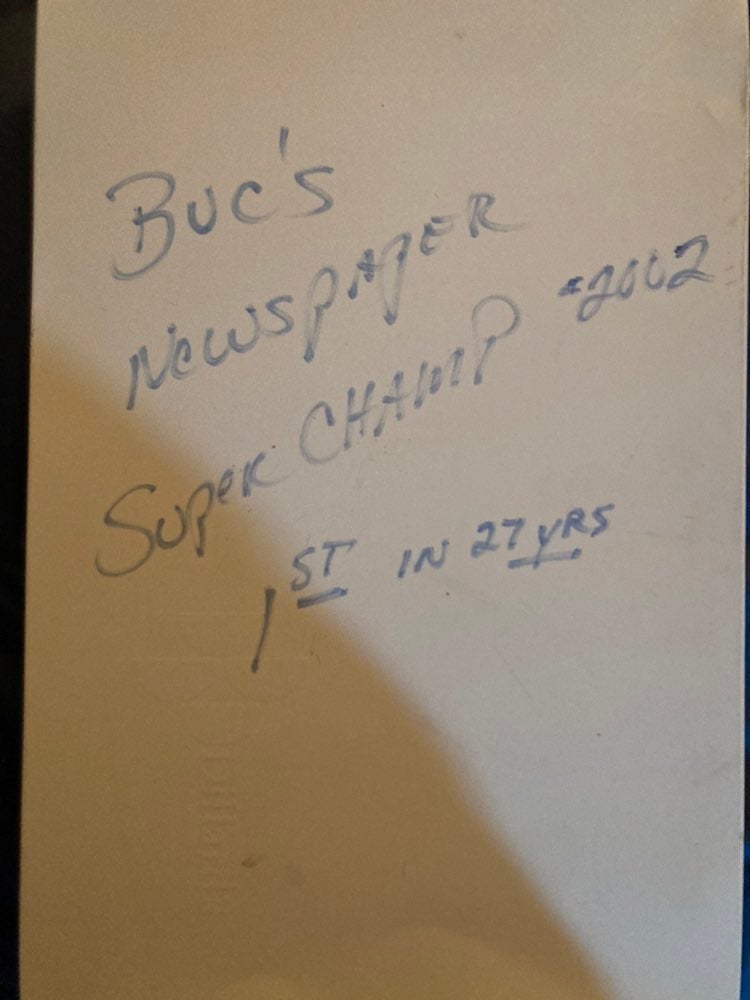 Buc's
NewspApER
-2002
SupeR CHAMP
1ST IN 27 yRS
Dillard's